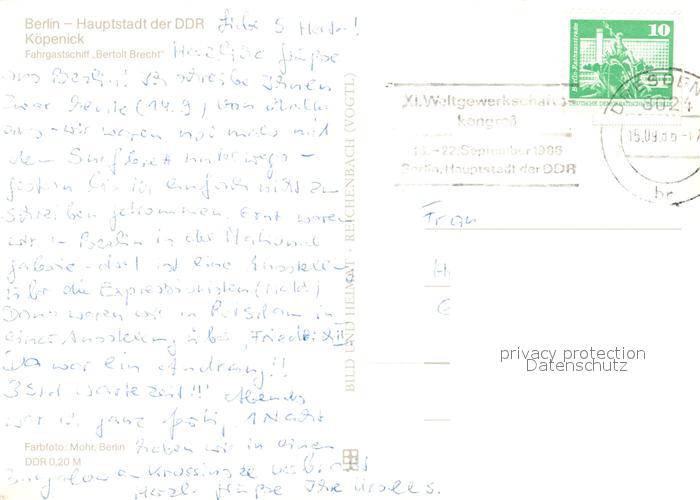 Berlin – Hauptstadt der DDR
Köpenick
Fahrgastschiff „Bertolt Brecht"
Liebe S
Herzliche Grüße
aus Berlin! Ich schreibe Ihnen
zwar heute (14.9) von
aus - wir waren mal mit
dem Surfbrett unterwegs -
gestern bin ich einfach nicht zum
Schreiben gekommen. Erst waren
wir in Berlin in der National
galerie - dort ist eine Ausstellung
über die Expressionisten
Dann waren wir in Potsdam in
einer Ausstellung über Friedrich II
Da war ein Andrang!!
3 Std Wartezeit!!! Abends
wir ganz 1 Nacht
haben wir in einem
Bungalow am
Herzl. Grüße Ihre
Farbfoto: Mohr, Berlin
DDR 0,20 M
BILD UND HEIMAT · REICHENBACH (VOGTL)
XI. Weltgewerkschafts-
kongreß
16.-22. September 1986
Berlin, Hauptstadt der DDR
10
DEUTSCHE DEMOKRATISCHE
DRESDEN
8024
15.09.86
br
Frau
H
G
privacy protection
Datenschutz